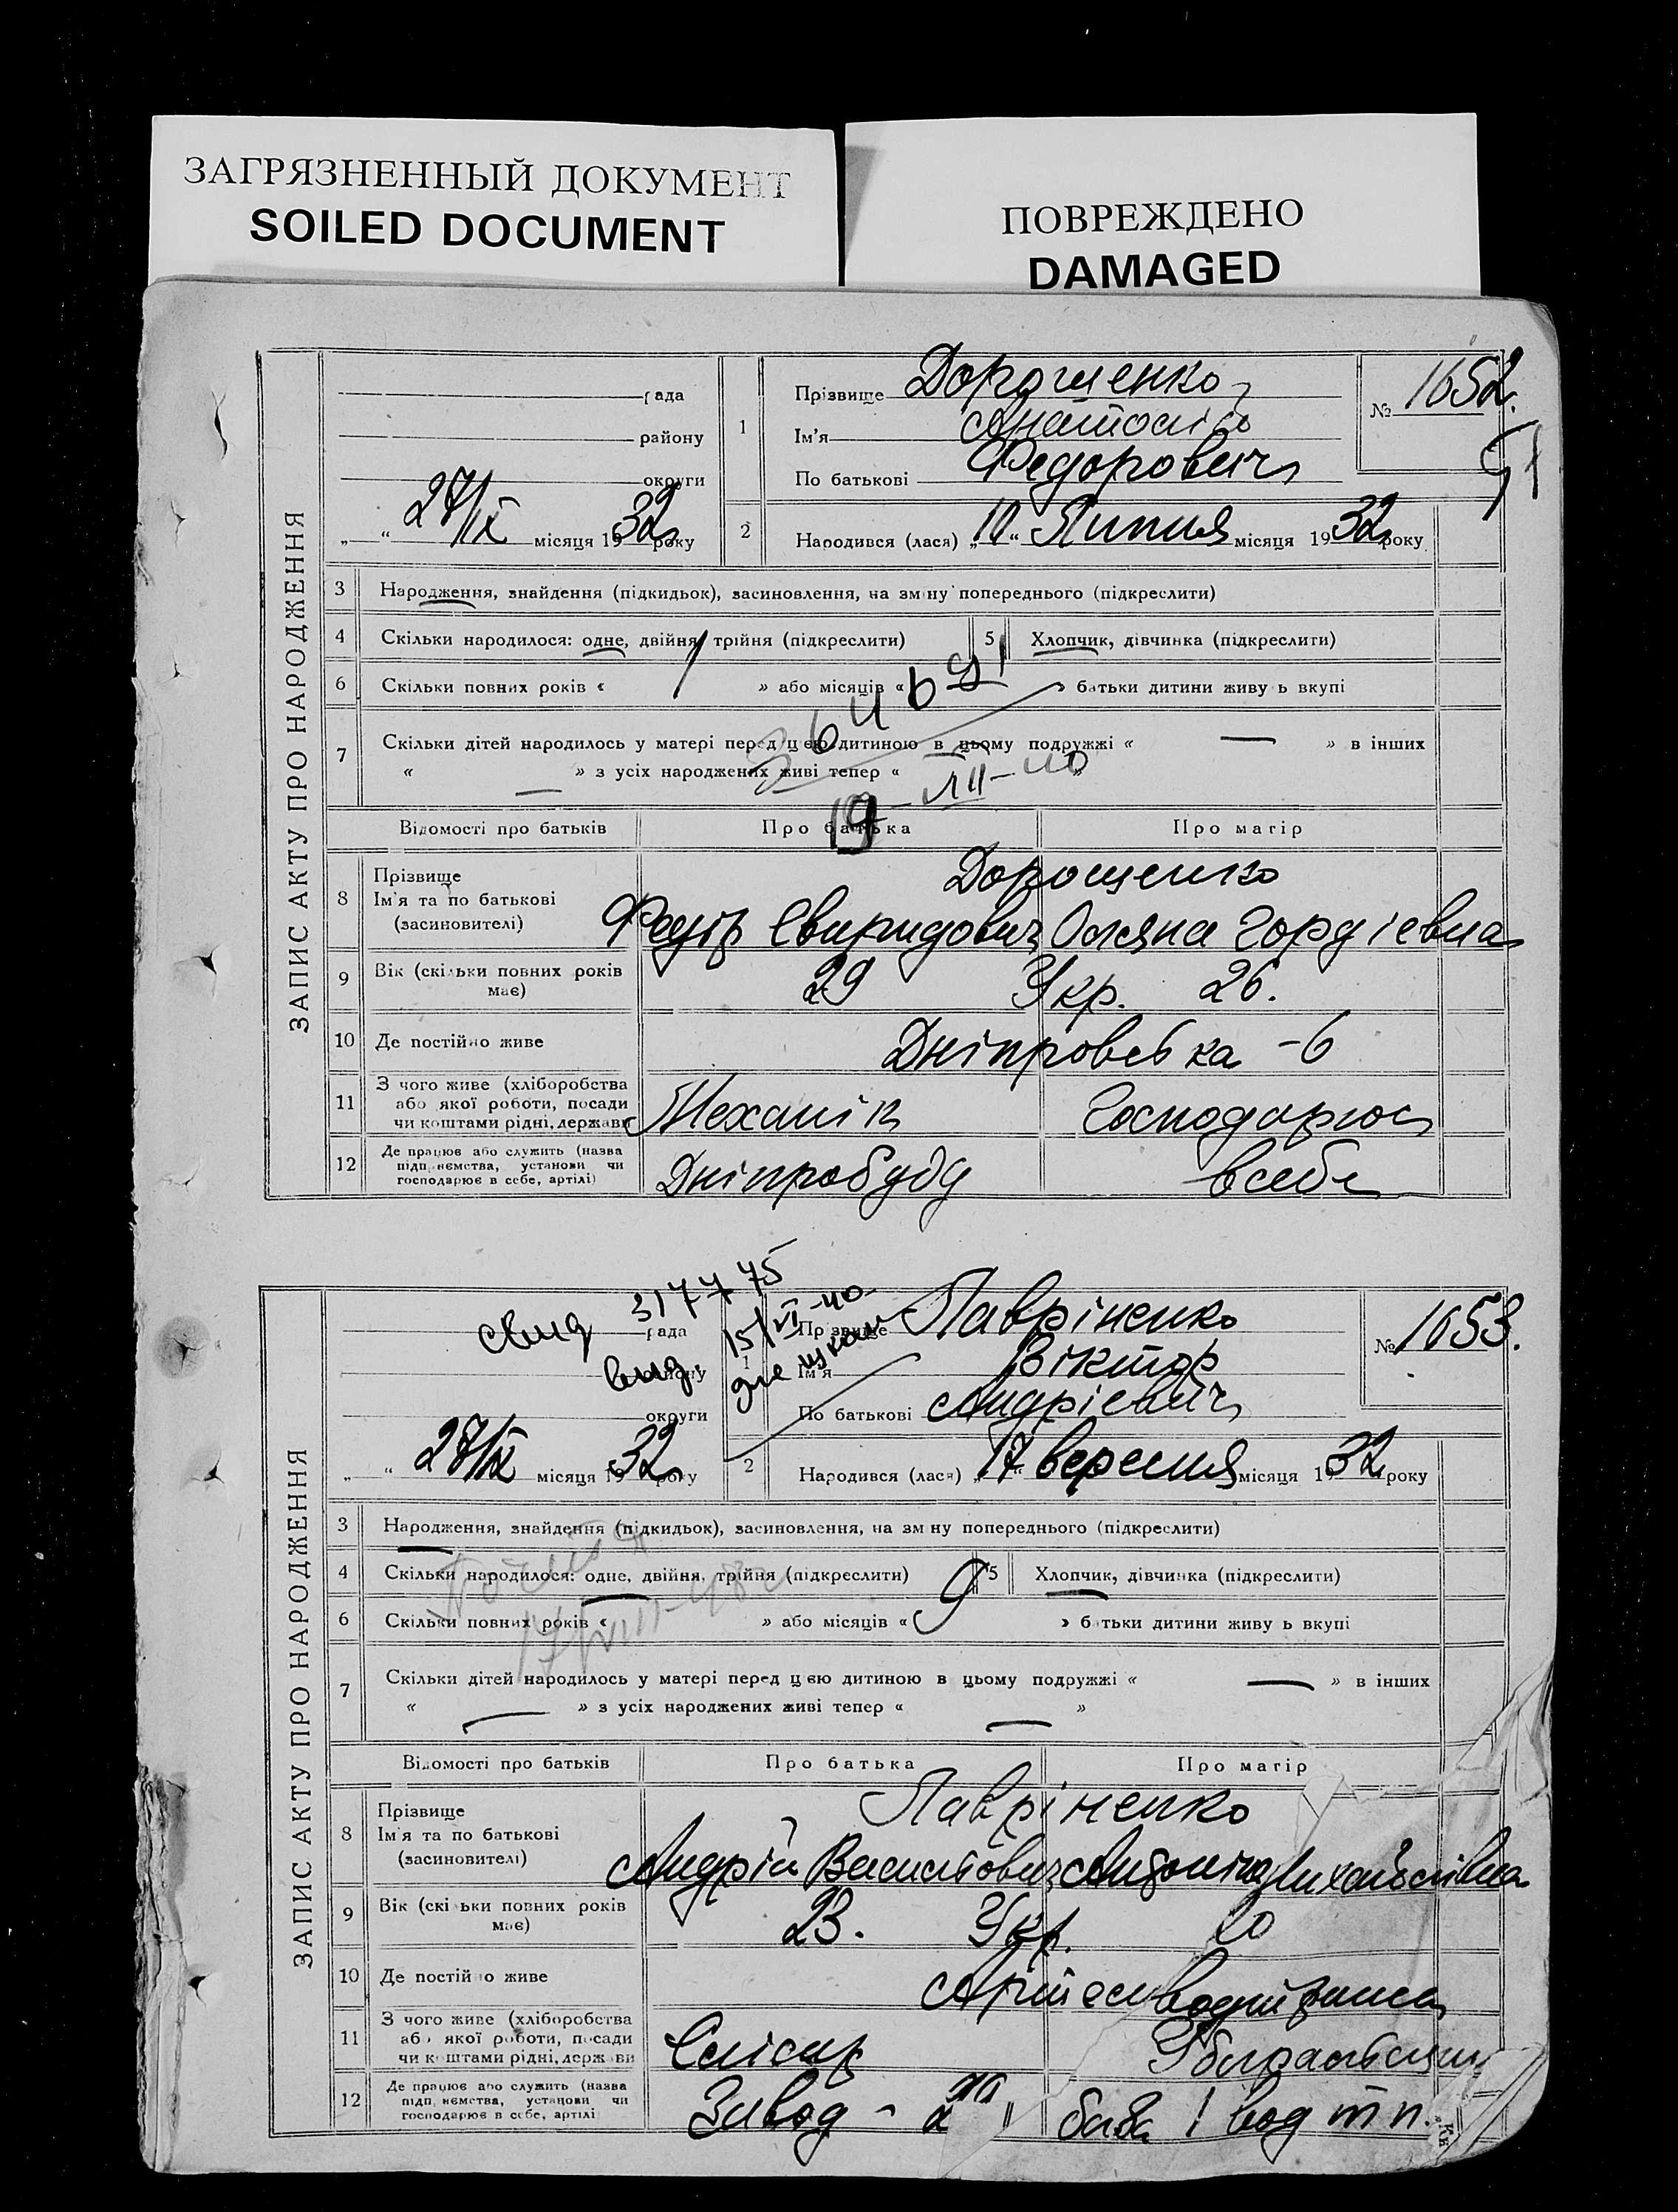 ЗАГРЯЗНЕННЫЙ ДОКУМЕНТ
SOILED DOCUMENT
ПОВРЕЖДЕНО
DAMAGED
ЗАПИС АКТУ ПРО НАРОДЖЕННЯ
рада
району
округи
„ “ 27/IX місяця 1932 року
1 Прізвище Дорошенко
Ім'я Анатолій
По батькові Федорович
№ 1652.
2 Народився (лася) „10“ Липня місяця 1932 року
3 Народження, знайдення (підкидьок), засиновлення, на зміну попереднього (підкреслити)
4 Скільки народилося: одне, двійня, трійня (підкреслити) 5 Хлопчик, дівчинка (підкреслити)
6 Скільки повних років « » або місяців « » батьки дитини живуть вкупі
7 Скільки дітей народилось у матері перед цією дитиною в цьому подружжі « — » в інших
« — » з усіх народжених живі тепер « »
Відомості про батьків Про батька Про матір
8 Прізвище Ім'я та по батькові (засиновителі)
Дорошенко
Федір Свиридович Оляна Гордієвна
9 Вік (скільки повних років має) 29 Укр. 26.
10 Де постійно живе Дніпровська -6
11 З чого живе (хліборобства або якої роботи, посади чи коштами рідні, держави
Механік Господарює
12 Де працює або служить (назва підприємства, установи чи господарює в себе, артілі)
Дніпробуду в себе
ЗАПИС АКТУ ПРО НАРОДЖЕННЯ
свид 317775
рада
вид. 15/VI-40
округи
„ “ 27/IX місяця 1932 року
1 Прізвище Лавріненко
Ім'я Віктор
По батькові Андрієвич
№ 1653.
2 Народився (лася) „17“ вересня місяця 1932 року
3 Народження, знайдення (підкидьок), засиновлення, на зміну попереднього (підкреслити)
4 Скільки народилося: одне, двійня, трійня (підкреслити) 5 Хлопчик, дівчинка (підкреслити)
6 Скільки повних років « » або місяців « 9 » батьки дитини живуть вкупі
7 Скільки дітей народилось у матері перед цією дитиною в цьому подружжі « — » в інших
« — » з усіх народжених живі тепер « — »
Відомості про батьків Про батька Про матір
8 Прізвище Ім'я та по батькові (засиновителі)
Лавріненко
Андрій Антоніна Михайлівна
9 Вік (скільки повних років має) 23. Укр. 20
10 Де постійно живе
11 З чого живе (хліборобства або якої роботи, посади чи коштами рідні, держави
Слісар
12 Де працює або служить (назва підприємства, установи чи господарює в себе, артілі)
Завод - база 1